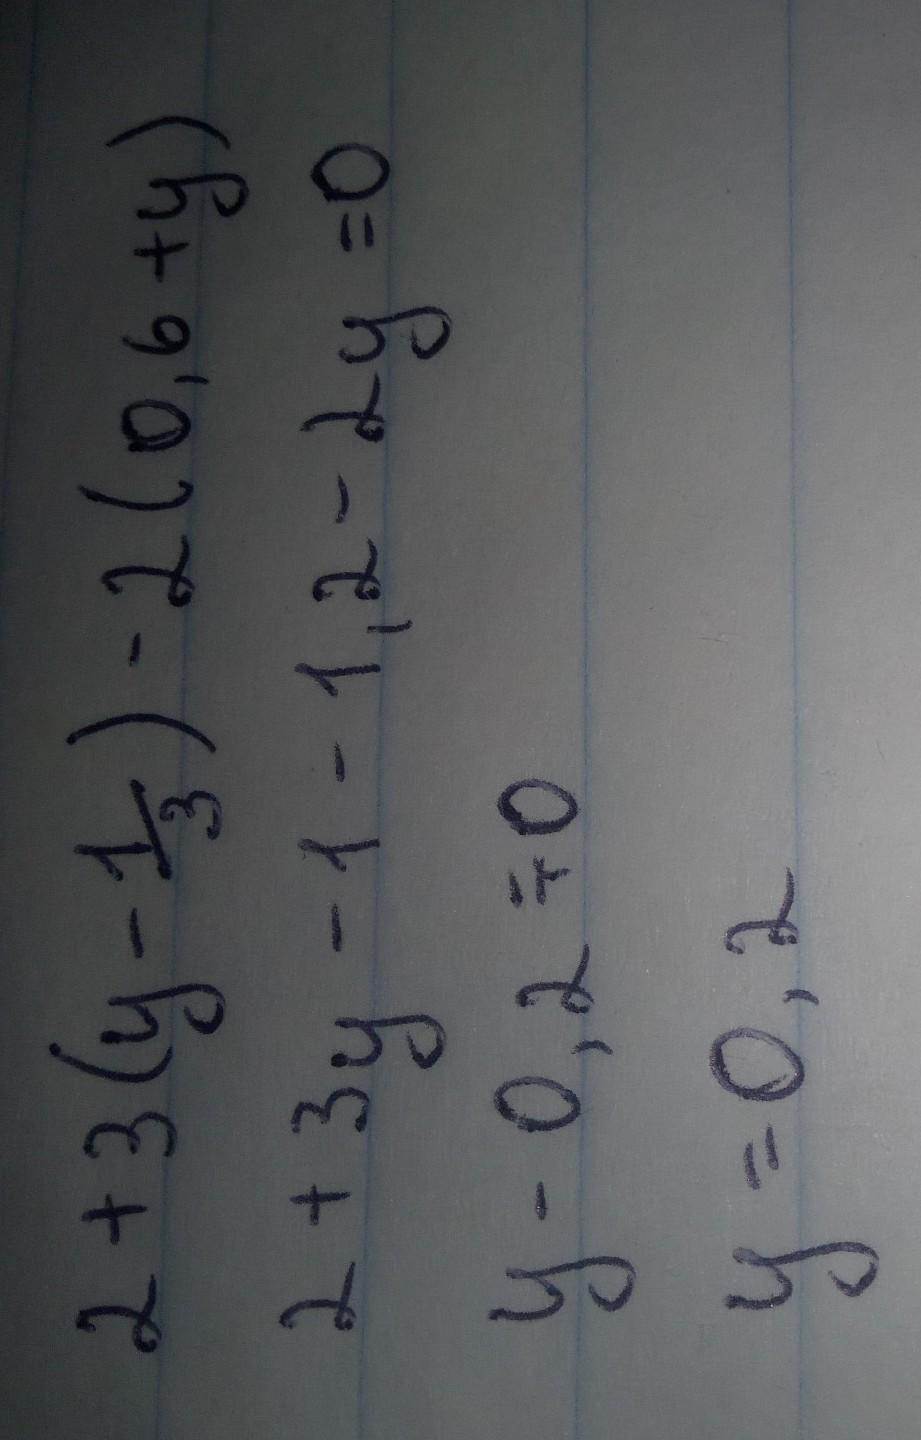 2 + 3(y - 1/3) - 2(0,6 + y)
2 + 3y - 1 - 1,2 - 2y = 0
y - 0,2 = 0
y = 0,2